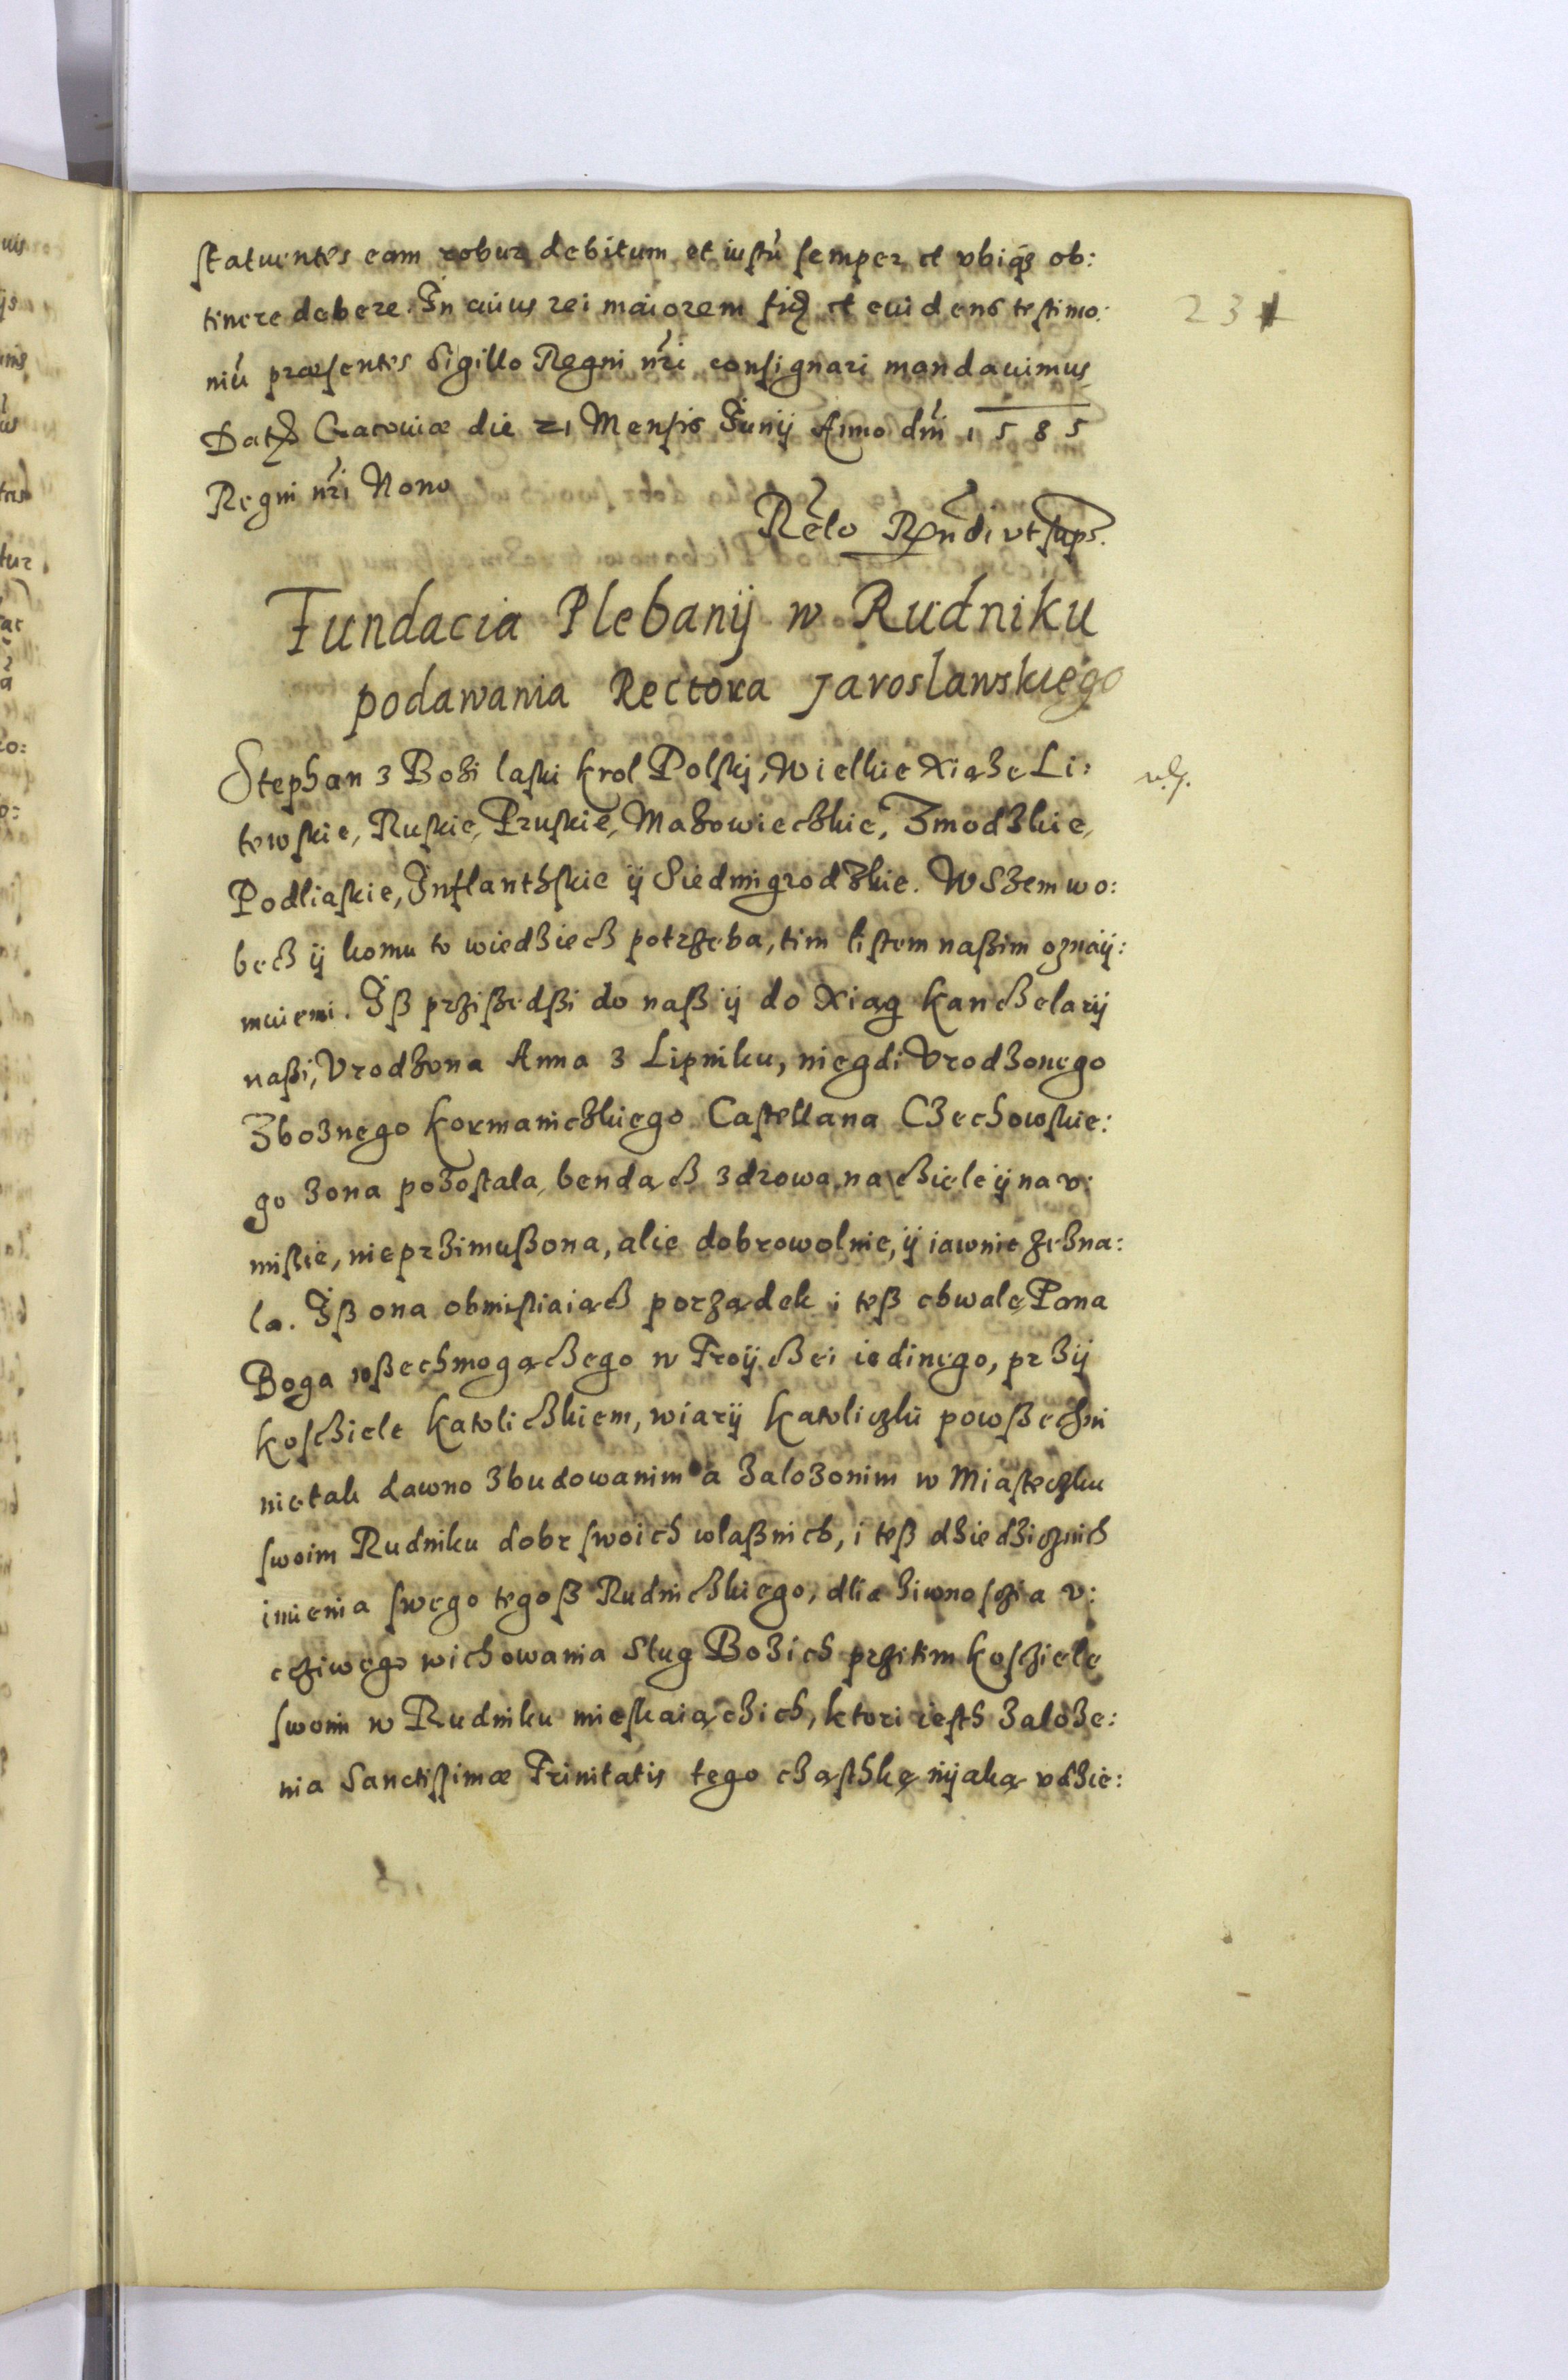 statuentes eam robur debitum et iustū semper et vbiqȝ ob:
tinere debere. In cuius rei maiorem fiđ et euidens testimo:
niū præsentes Sigillo Regni nr̄i consignari mandauimus
Datȝ Cracouiæ die 21 Mensis Junij Anno dn̄i 1585
Regni nr̄i Nono
Rēlo Rn̄di vt supˢ.
Fundacia Plebanij w Rudniku
podawania Rectora Jaroslawskiego
Stephan z Bozi laski krol Polskj, Wielkie Xiąze Li:
tewskie, Ruskie, Pruskie, Mazowieczkie, Zmodzkie,
Podliaskie, Inflanthskie ÿ Siedmigrodzkie. WSzem wo:
becz ÿ komu to wiedziecz potrzeba, tim listem naßim oznaÿ:
muiemi. Iß przißedßi do naß ÿ do Xiąg kanczelarÿ
naßi, Vrodzona Anna z Lipniku, niegdi Vrodzonego
Zboznego kormaniczkiego Castellana Czechowskie:
go zona pozostala, bendącz zdrowa na cziele ÿ na v:
mißie, nieprzimußona, alie dobrowolnie, ÿ iawnie zezna:
la. Iß ona obmißliaiącz porządek i teß chwalę Pana
Boga wßechmogączego w Troÿczei iedinego, przÿ
koscziele katoliczkiem, wiarÿ katoliczki powßechni
nietak dawno zbudowanim a zalozonim w Miasteczku
swoim Rudniku dobr swoich wlaßnich, i teß dziedzicznich
imienia swego tegoß Rudniczkiego, dlia ziwnosczia v:
cziwego wichowania Slug Bozich przitim koscziele
swoim w Rudniku mieskaiączich, ktori iesth zaloze:
nia Sanctissimæ Trinitatis tego cząsthkę nÿaką vdzie:
231